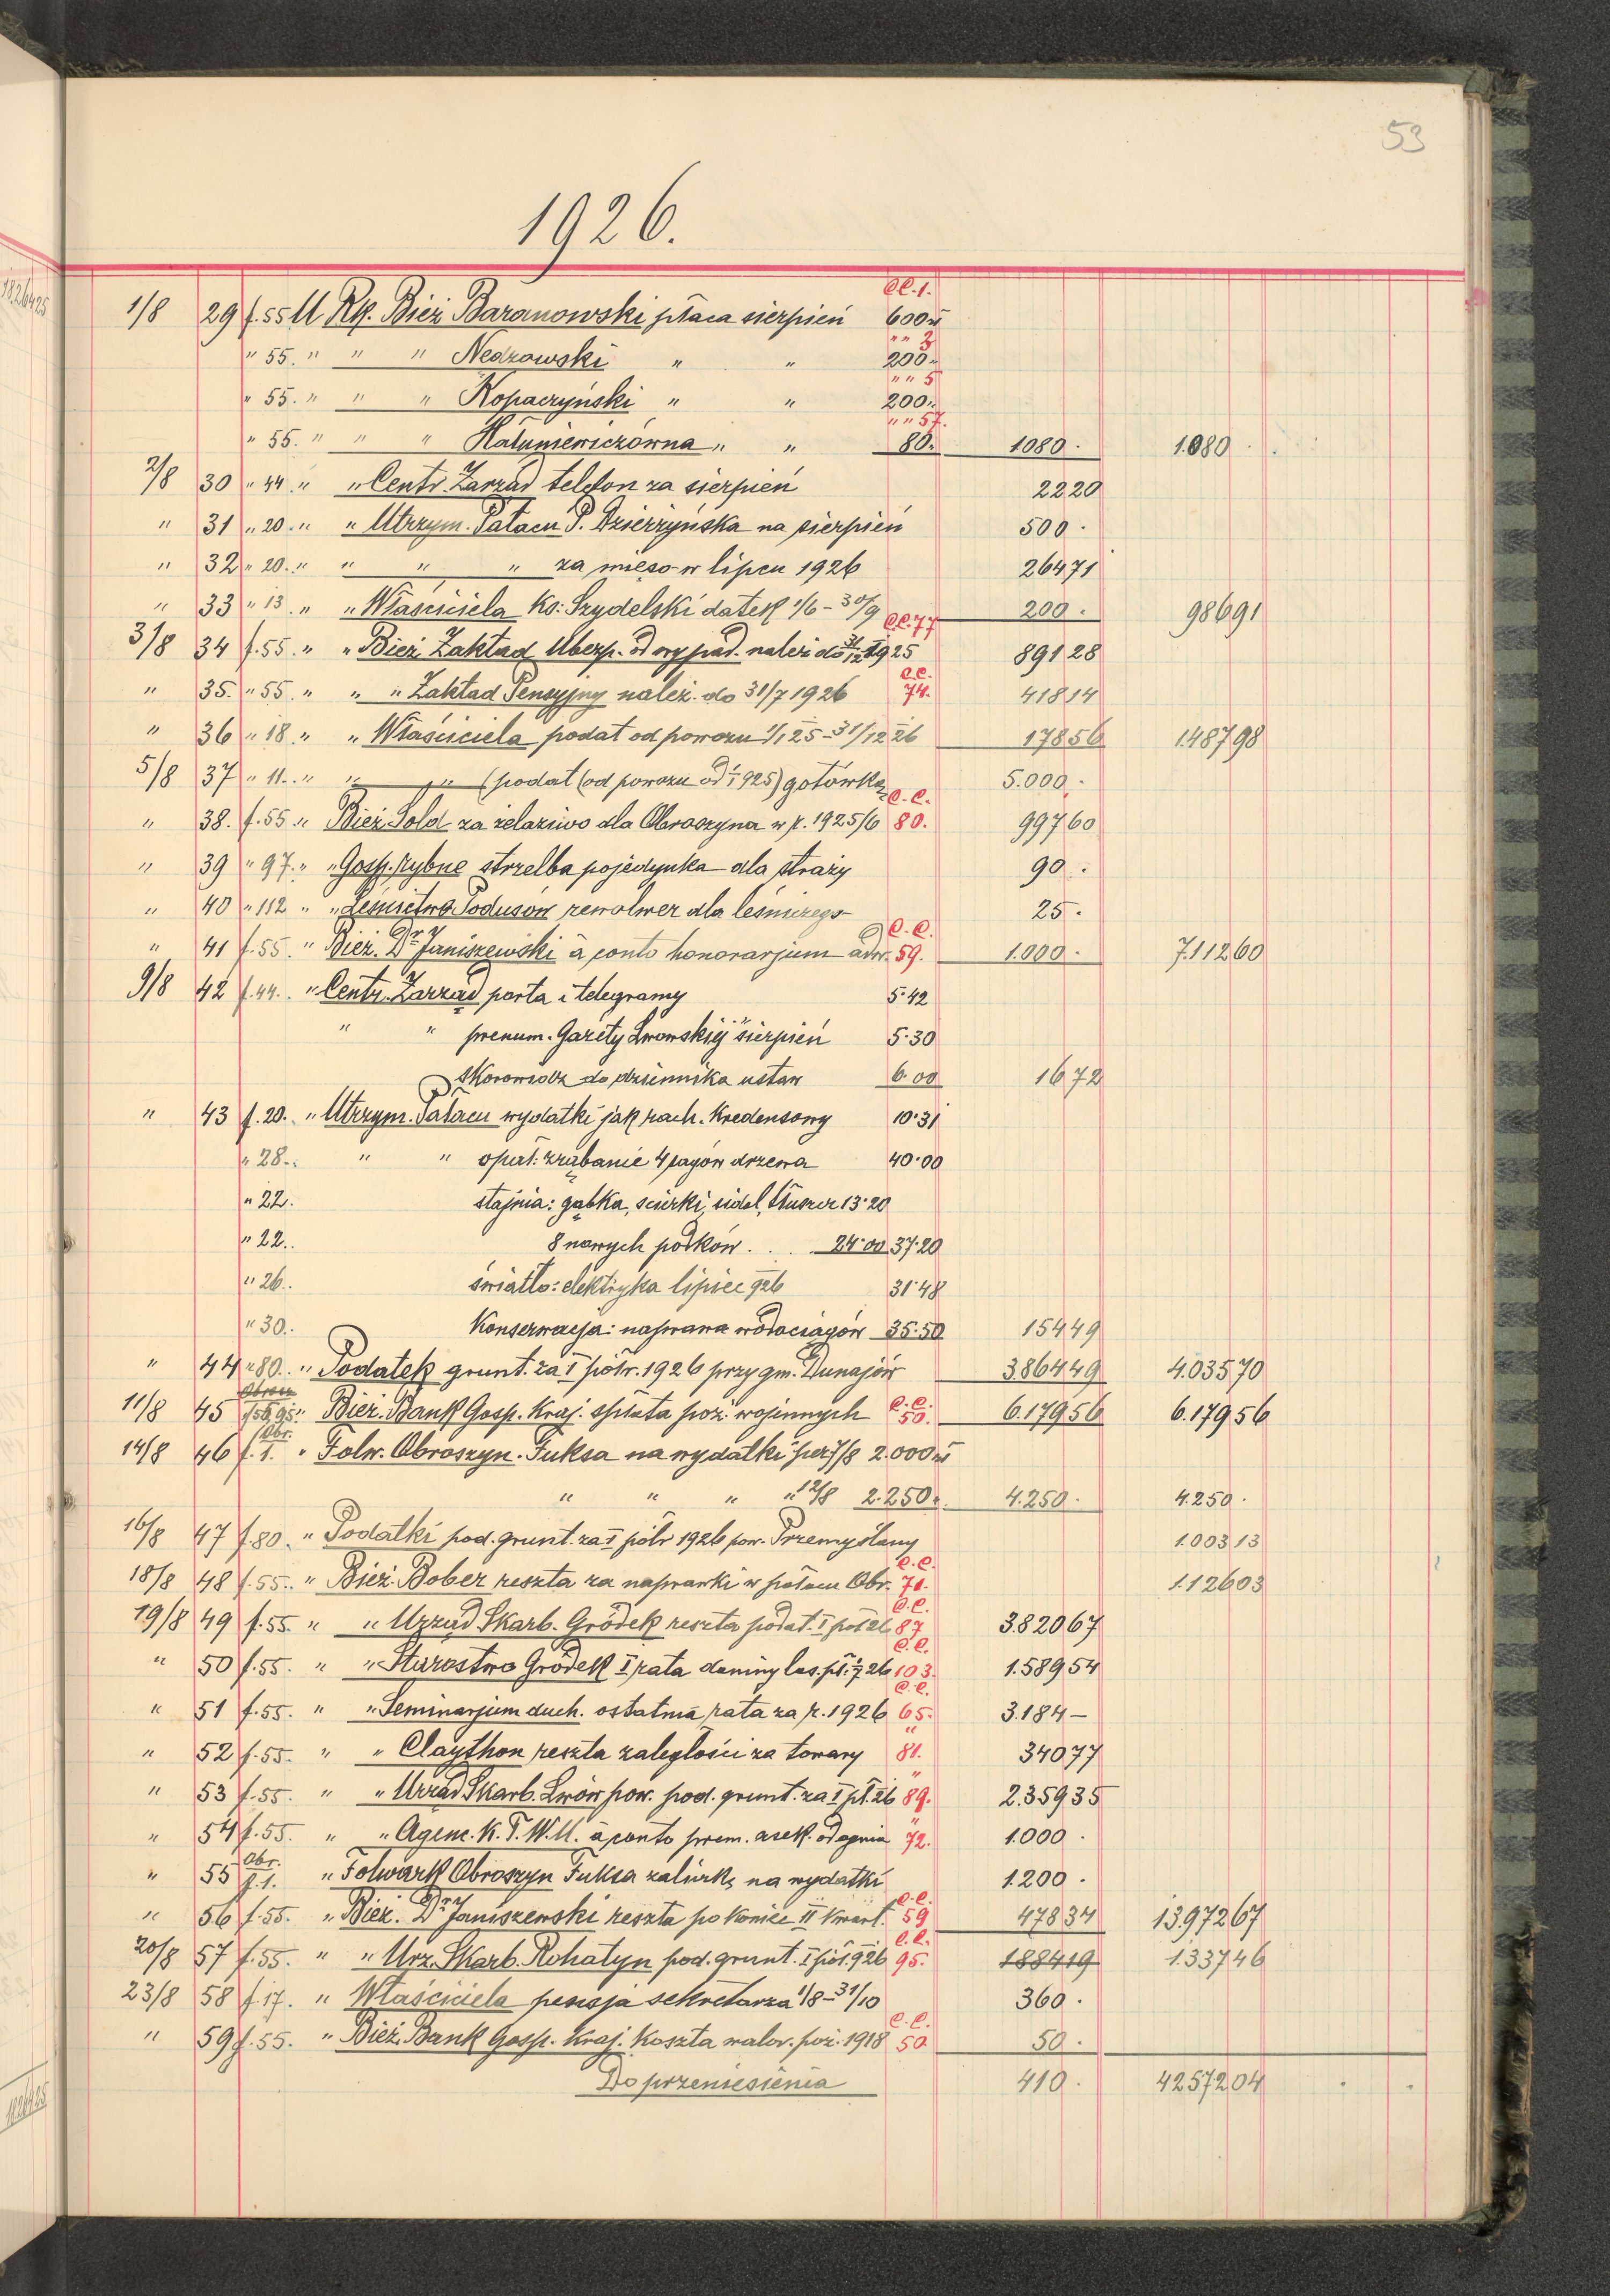 53
1926.
C.C.1.
1/8 29 f.55 U Rk. Bież Baranowski płaca sierpień 600 zł
" " 3
" 55. " " " Nedzowski " " 200.-
" " 5
" 55. " " " Kopaczyński " " 200.-
" " 57.
" 55. " " " Hałuniewiczówna " " 80.- 1080 · 1.080 ·
2/8 30 " 44 " " Centr. Zarząd telefon za sierpień 22 20
" 31 " 20 " " Utrzym. Pałacu P. Dzierżyńska na sierpień 500 ·
" 32 " 20 " " " " za mięso w lipcu 1926 264 71
" 33 " 13 " " Właściciela Ks: Szydelski datek 1/6 - 30/9 200 · 986 91
C.C. 77
3/8 34 f.55. " " Bież. Zakład Ubezp. od wypad. należ do 31/12 1925 891 28
C.C.
" 35. " 55. " " " Zakład Pensyjny należ. do 31/7 1926 74. 418 14
" 36 " 18. " " Właściciela podat od powozu 1/1 25 - 31/12 26 178 56 1.487 98
5/8 37 " 11. " " " (podat (od powozu od 1/1 925) gotówką 5.000 ·
C.C.
" 38. f.55 " Bież. Sold za żelaziwo dla Obroszyna w r. 1925/6 80. 997 60
" 39 " 97. " " Gosp. rybne strzelba pojedynka dla straży 90 ·
" 40 " 112 " " Leśnictwo Podusów rewolwer dla leśniczego 25 ·
C.C.
" 41 f.55. " Bież. Dr Janiszewski à conto honorarjum adw. 59. 1.000 · 7.112 60
9/8 42 f.44. " Centr. Zarząd porta i telegramy 5·42
" " prenum. Gazety Lwowskiej sierpień 5·30
Skorowidz do dziennika ustaw 6·00 16 72
" 43 f.20. " Utrzym. Pałacu wydatki jak rach. Kredensowy 10·31
" 28. " " opał: zrąbanie 4 sągów drzewa 40·00
" 22. stajnia: gąbka, ścierki, sidol, tłuszcz 13·20
" 22. 8 nowych podków . . . 24·00 37·20
" 26. światło: elektryka lipiec 926 31·48
" 30. Konserwacja: naprawa wodociągów 35·50 154 49
" 44 " 80. " Podatek grunt. za I półr. 1926 przy gm. Dunajów 3.864 49 4.035 70
Obrosz C.C.
11/8 45 f.55,95. " Bież. Bank Gosp. Kraj. spłata poż. wojennych 50. 6.179 56 6.179 56
Obr.
14/8 46 f. 1. " Folw. Obroszyn. Fuksa na wydatki per 7/8 2.000 zł
" " " " 12/8 2.250 " 4.250 · 4.250 ·
16/8 47 f.80. " Podatki pod. grunt. za I półr 1926 pow. Przemyślany 1.003 13
C.C.
18/8 48 f.55. " Bież. Bober reszta za naprawki w pałacu Obr. 71. 1.126 03
C.C.
19/8 49 f.55. " " Urząd Skarb. Gródek reszta podat. I pół 26 87 3.820 67
C.C.
" 50 f.55. " " Starostwo Gródek I rata daniny las. pł. 1/7 26 103. 1.589 54
C.C.
" 51 f.55. " " Seminarjum duch. ostatnia rata za r. 1926 65. 3.184 –
" 52 f.55. " " Claython reszta zaległości za towary 81. 340 77
" 53 f.55. " " Urząd Skarb. Lwów pow. pod. grunt. za I pł. 26 89. 2.359 35
" 54 f.55. " " Agenc. K.T.W.U. à conto prem. asek. od ognia 72. 1.000 ·
" 55 Obr. f.1. " Folwark Obroszyn Fuksa zaliczkę na wydatki 1.200 ·
C.C.
" 56 f.55. " Bież. Dr Janiszewski reszta po koniec II kwart. 59 478 34 13.972 67
C.C.
20/8 57 f.55. " " Urz. Skarb. Rohatyn pod. grunt. I pół. 926 95. 1884 19 1.337 46
23/8 58 f.17. " Właściciela pensja sekretarza 1/8 - 31/10 360 ·
C.C.
" 59 f.55. " Bież. Bank Gosp. Kraj. koszta walor. poż. 1918 50. 50 ·
Do przeniesienia 410 · 42572 04